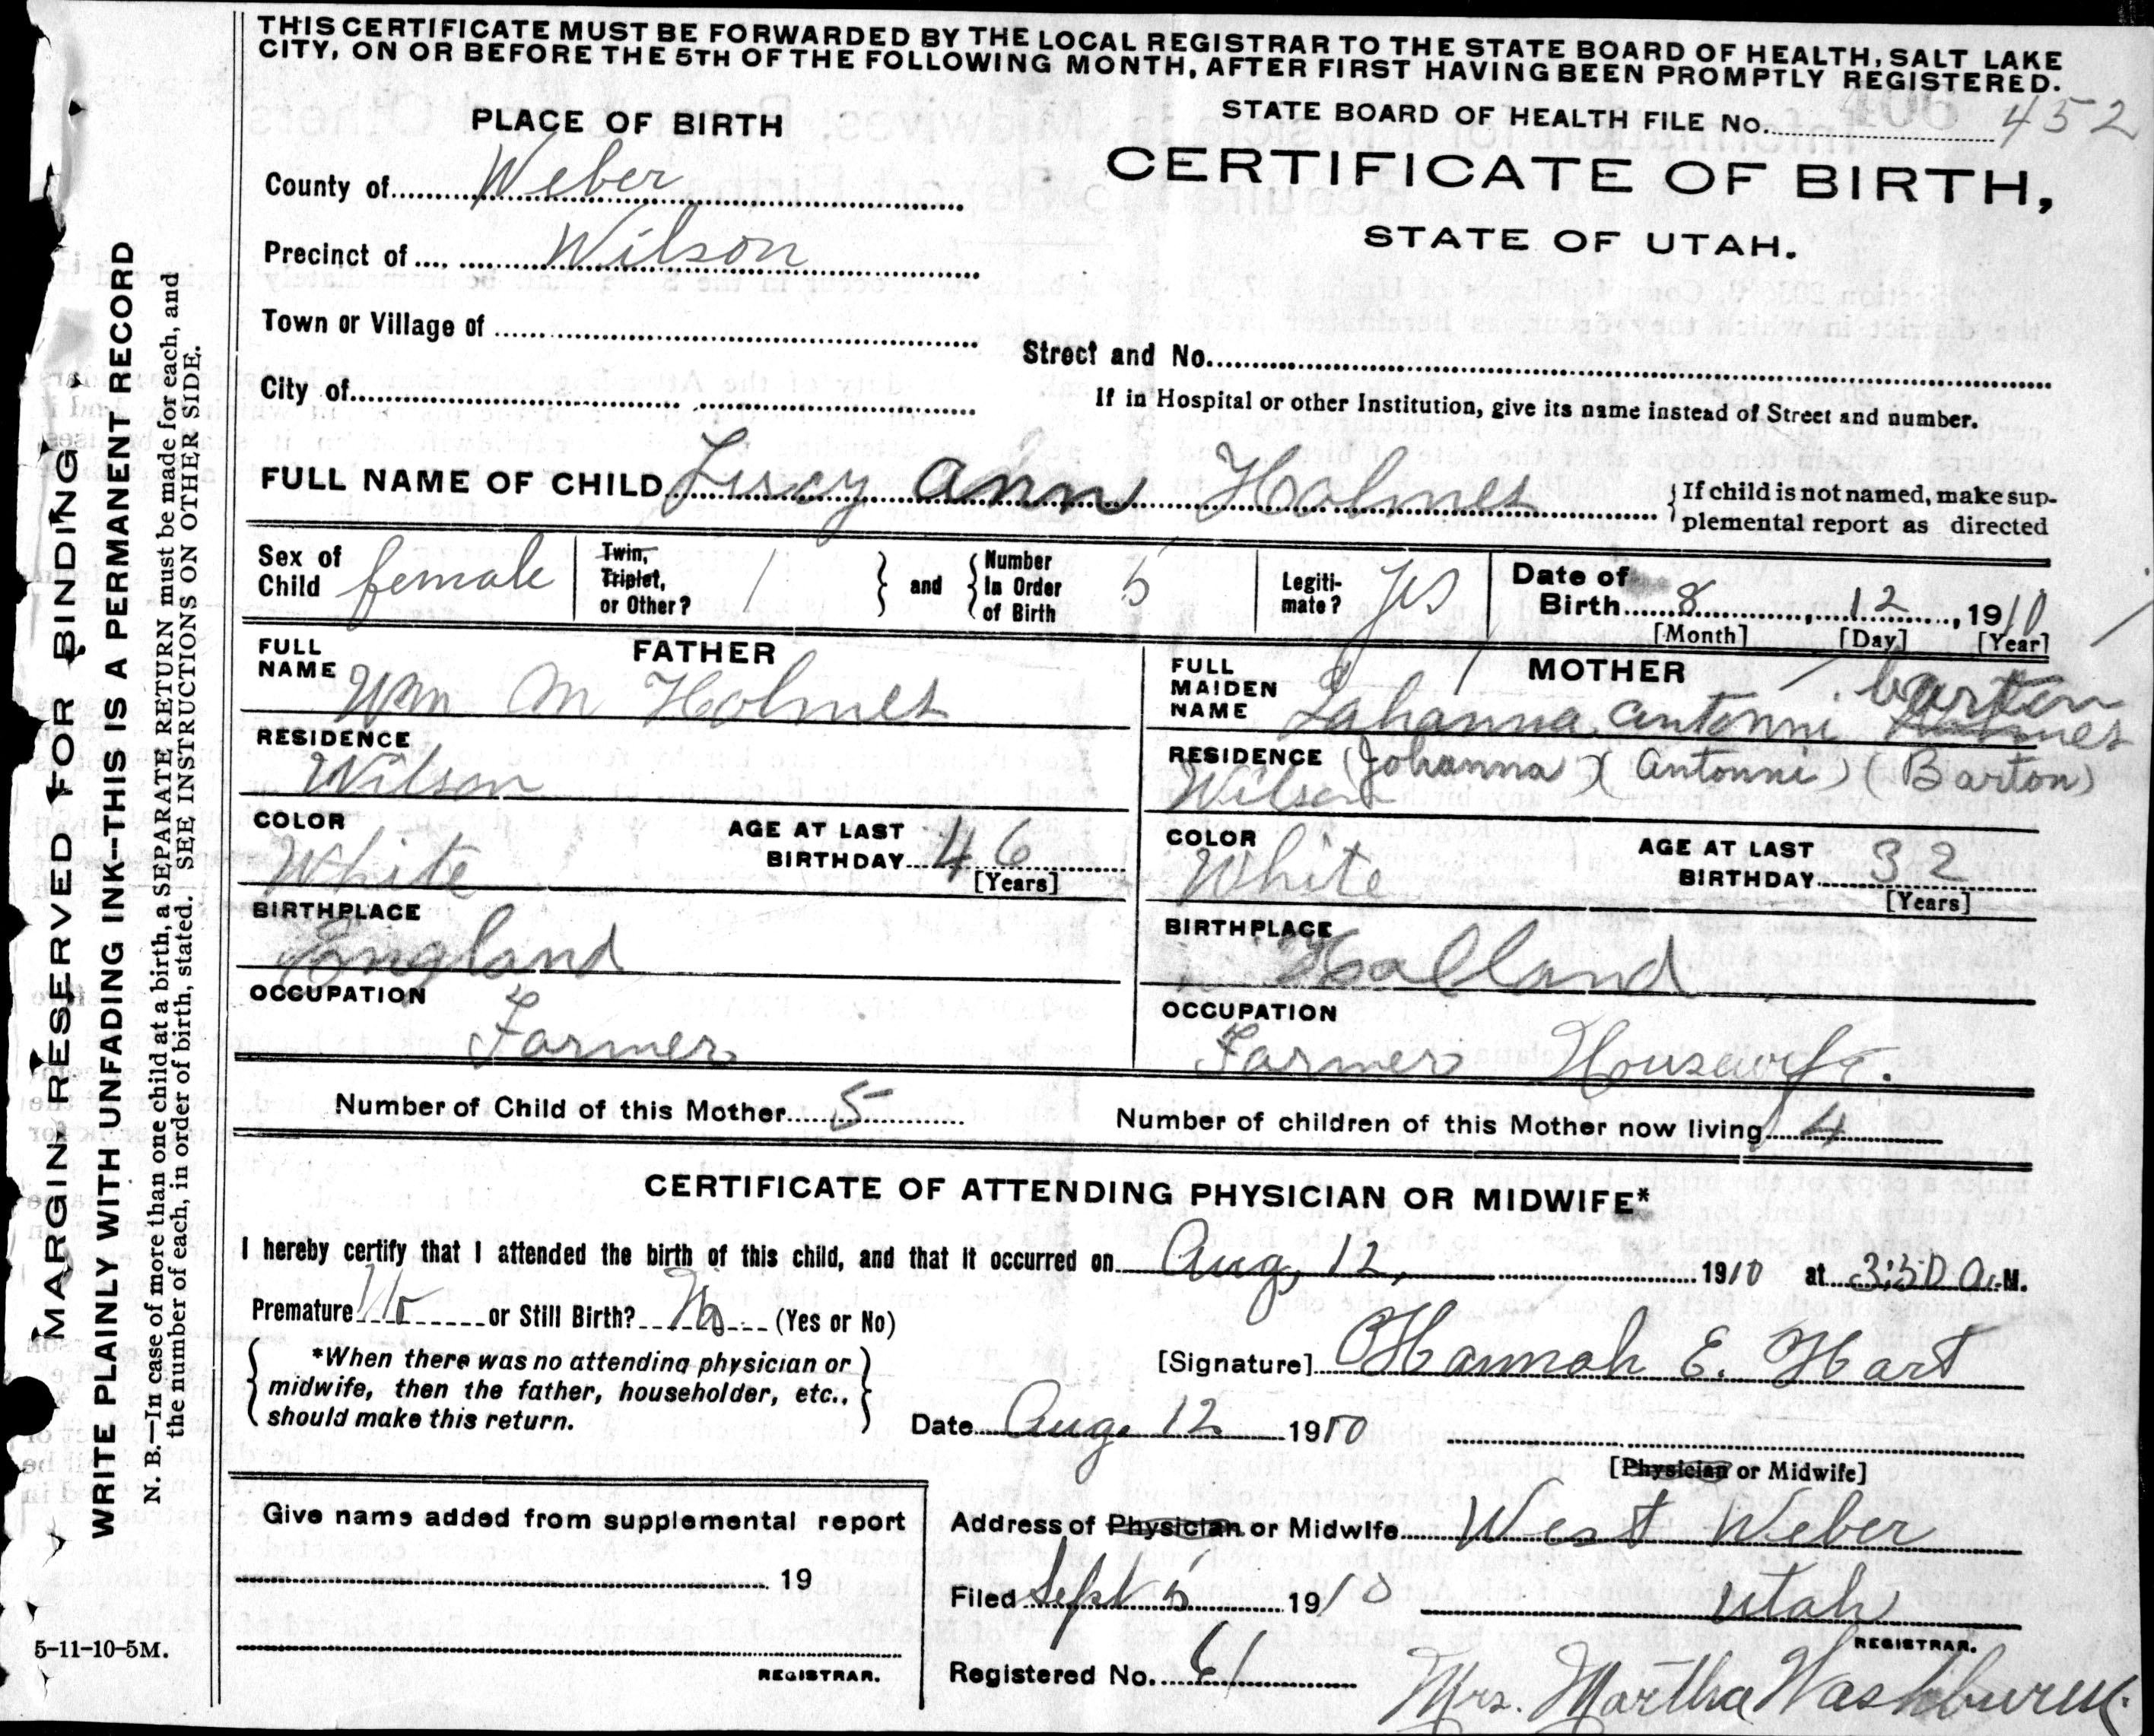 THIS CERTIFICATE MUST BE FORWARDED BY THE LOCAL REGISTRAR TO THE STATE BOARD OF HEALTH, SALT LAKE
CITY, ON OR BEFORE THE 5TH OF THE FOLLOWING MONTH, AFTER FIRST HAVING BEEN PROMPTLY REGISTERED.
STATE BOARD OF HEALTH FILE No. 452
CERTIFICATE OF BIRTH,
STATE OF UTAH.
PLACE OF BIRTH
County of Weber
Precinct of Wilson
Town or Village of
City of
Street and No.
If in Hospital or other Institution, give its name instead of Street and number.
FULL NAME OF CHILD Lucy Ann Holmes
If child is not named, make sup-
plemental report as directed
Sex of
Child female
Twin,
Triplet,
or Other? 1
and
Number
In Order
of Birth 5
Legiti-
mate? yes
Date of
Birth 8, 12, 1910
[Month] [Day] [Year]
FATHER
FULL
NAME Wm M Holmes
RESIDENCE
Wilson
COLOR
White
AGE AT LAST
BIRTHDAY 46
[Years]
BIRTHPLACE
England
OCCUPATION
Farmer
MOTHER
barton
FULL
MAIDEN
NAME Lahanna antonni Holmes
RESIDENCE (Johanna) (antonni) (Barton)
Wilson
COLOR
White
AGE AT LAST
BIRTHDAY 32
[Years]
BIRTHPLACE
Holland
OCCUPATION
Farmer Housewife.
Number of Child of this Mother 5
Number of children of this Mother now living 4
CERTIFICATE OF ATTENDING PHYSICIAN OR MIDWIFE*
I hereby certify that I attended the birth of this child, and that it occurred on Aug, 12, 1910 at 3:30 a.M.
Premature No or Still Birth? No (Yes or No)
*When there was no attending physician or
midwife, then the father, householder, etc.,
should make this return.
[Signature] Hannah E. Hart
Date Aug. 12 1910
[Physician or Midwife]
Address of Physician or Midwife West Weber
Utah
Filed Sept 5 1910
REGISTRAR.
Registered No. 61
Mrs. Martha Washburn
Give name added from supplemental report
19
REGISTRAR.
5-11-10-5M.
MARGIN RESERVED FOR BINDING
WRITE PLAINLY WITH UNFADING INK—THIS IS A PERMANENT RECORD
N. B.—In case of more than one child at a birth, a SEPARATE RETURN must be made for each, and
the number of each, in order of birth, stated. SEE INSTRUCTIONS ON OTHER SIDE.